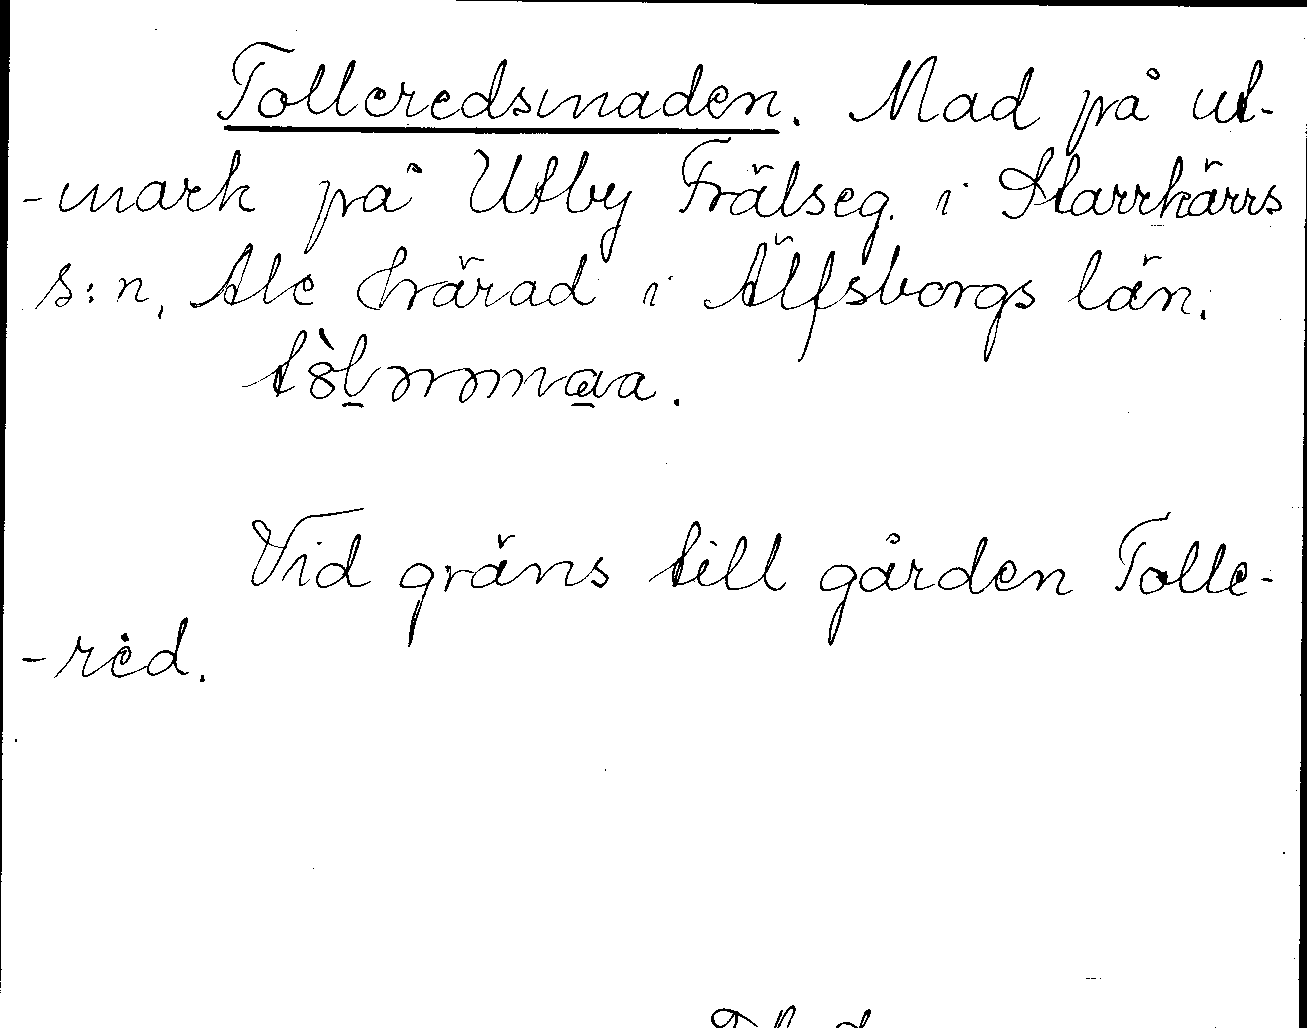 Tolleredsmaden. Mad på ut-
-mark på Utby Frälseg. i Starrkärrs
s:n, Ale härad i Älfsborgs län.
Vid gräns till gården Tolle-
-red.